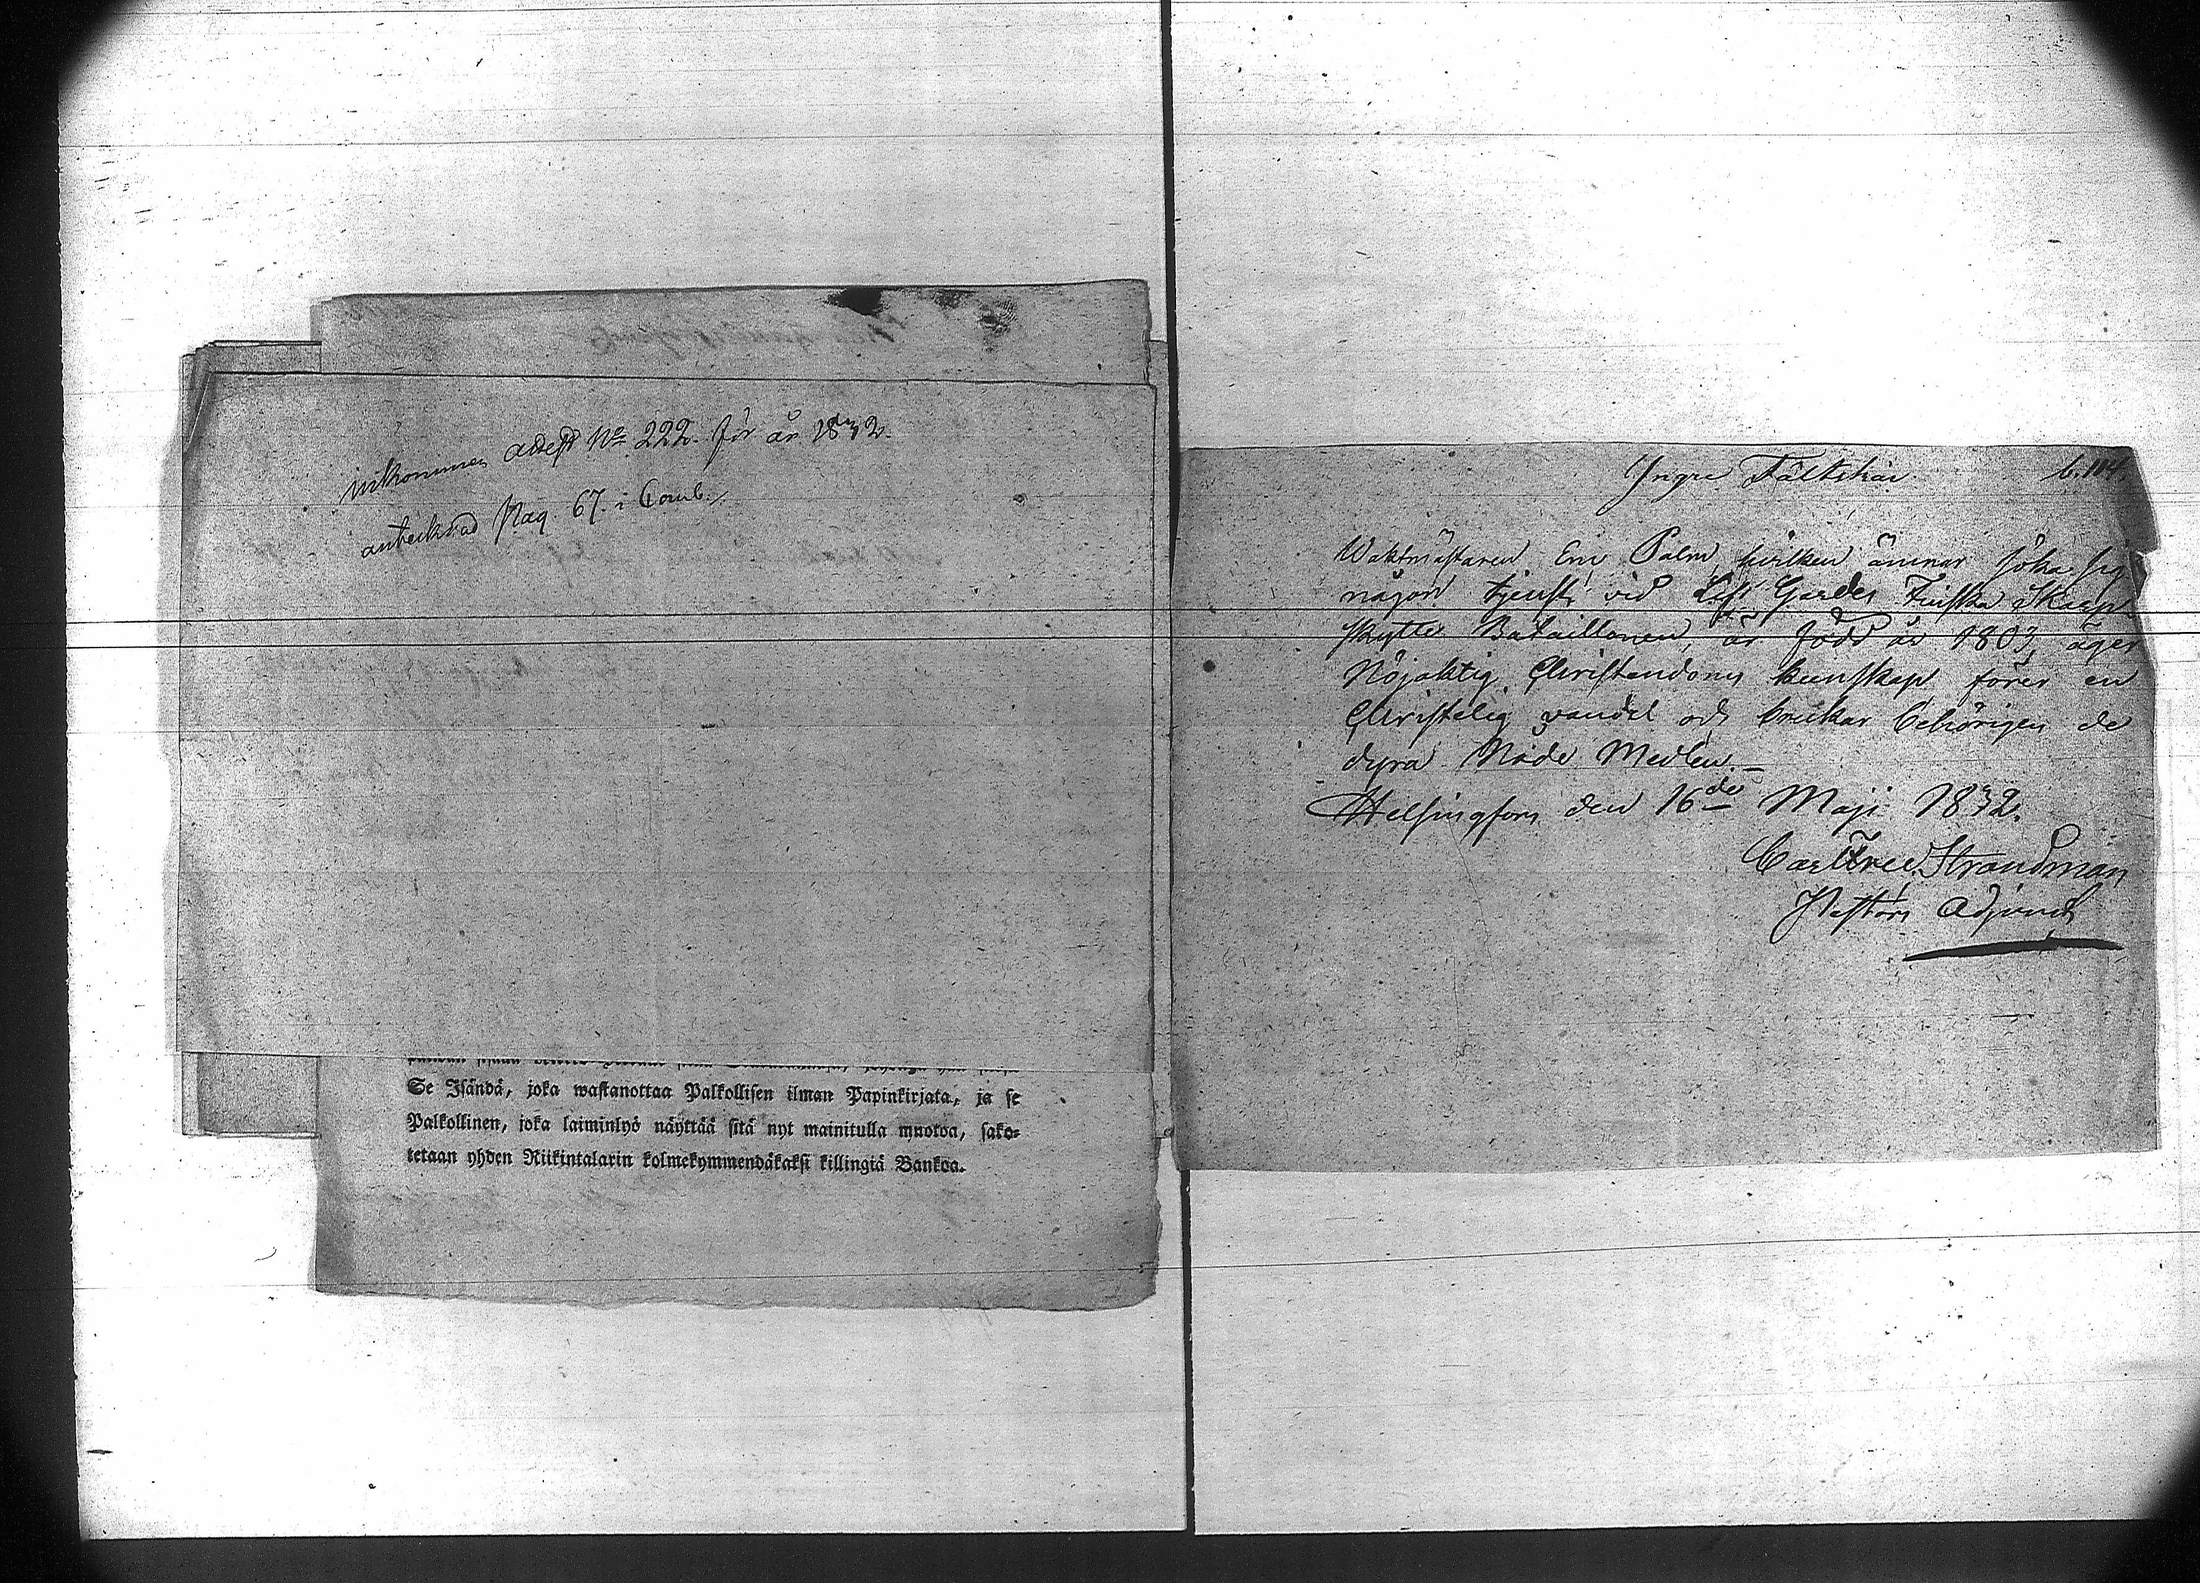 inkommen attest No 222. för år 1832.
antecknad Pag 67. i Comb.
Se Isändä, joka wastanottaa Palkollisen ilman Papinkirjata, ja se
Palkollinen, joka laiminlyö näyttää sitä nyt mainitulla muotoa, sako-
tetaan yhden Riikintalarin kolmekymmendäkaksi killingiä Bankoa.
Yngre Fältskär
b. 114.
Waktmästaren Eric Palm, hvilken ämnar söka sig
någon tjenst vid Lif Gardes Finska Skarp
skytte Bataillonen, är född år 1803, äger
Nöjaktig Christendoms kunskap förer en
Christelig vandel och brukar behörigen de
dyra Nåde Medlen.—
Helsingfors den 16de Maji 1832.
Carl Fred. Strandman
Pastors Adjunct